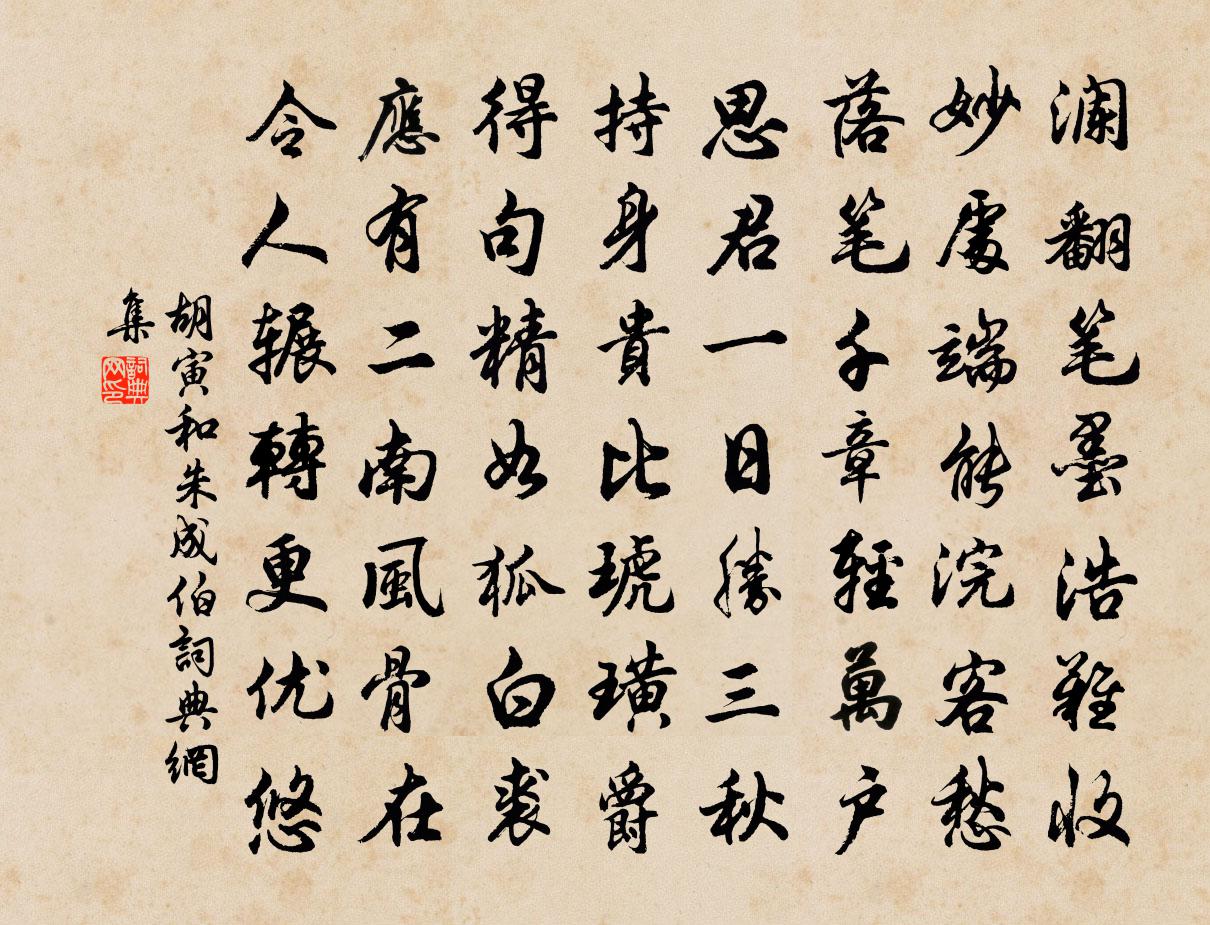 澜翻笔墨浩難收
妙處端能浣客愁
落笔千章輕萬户
思君一日勝三秋
持身貴比琥璜爵
得句精如狐白裘
應有二南風骨在
令人辗轉更优悠
胡寅和朱成伯詞典網
集
詞典网印